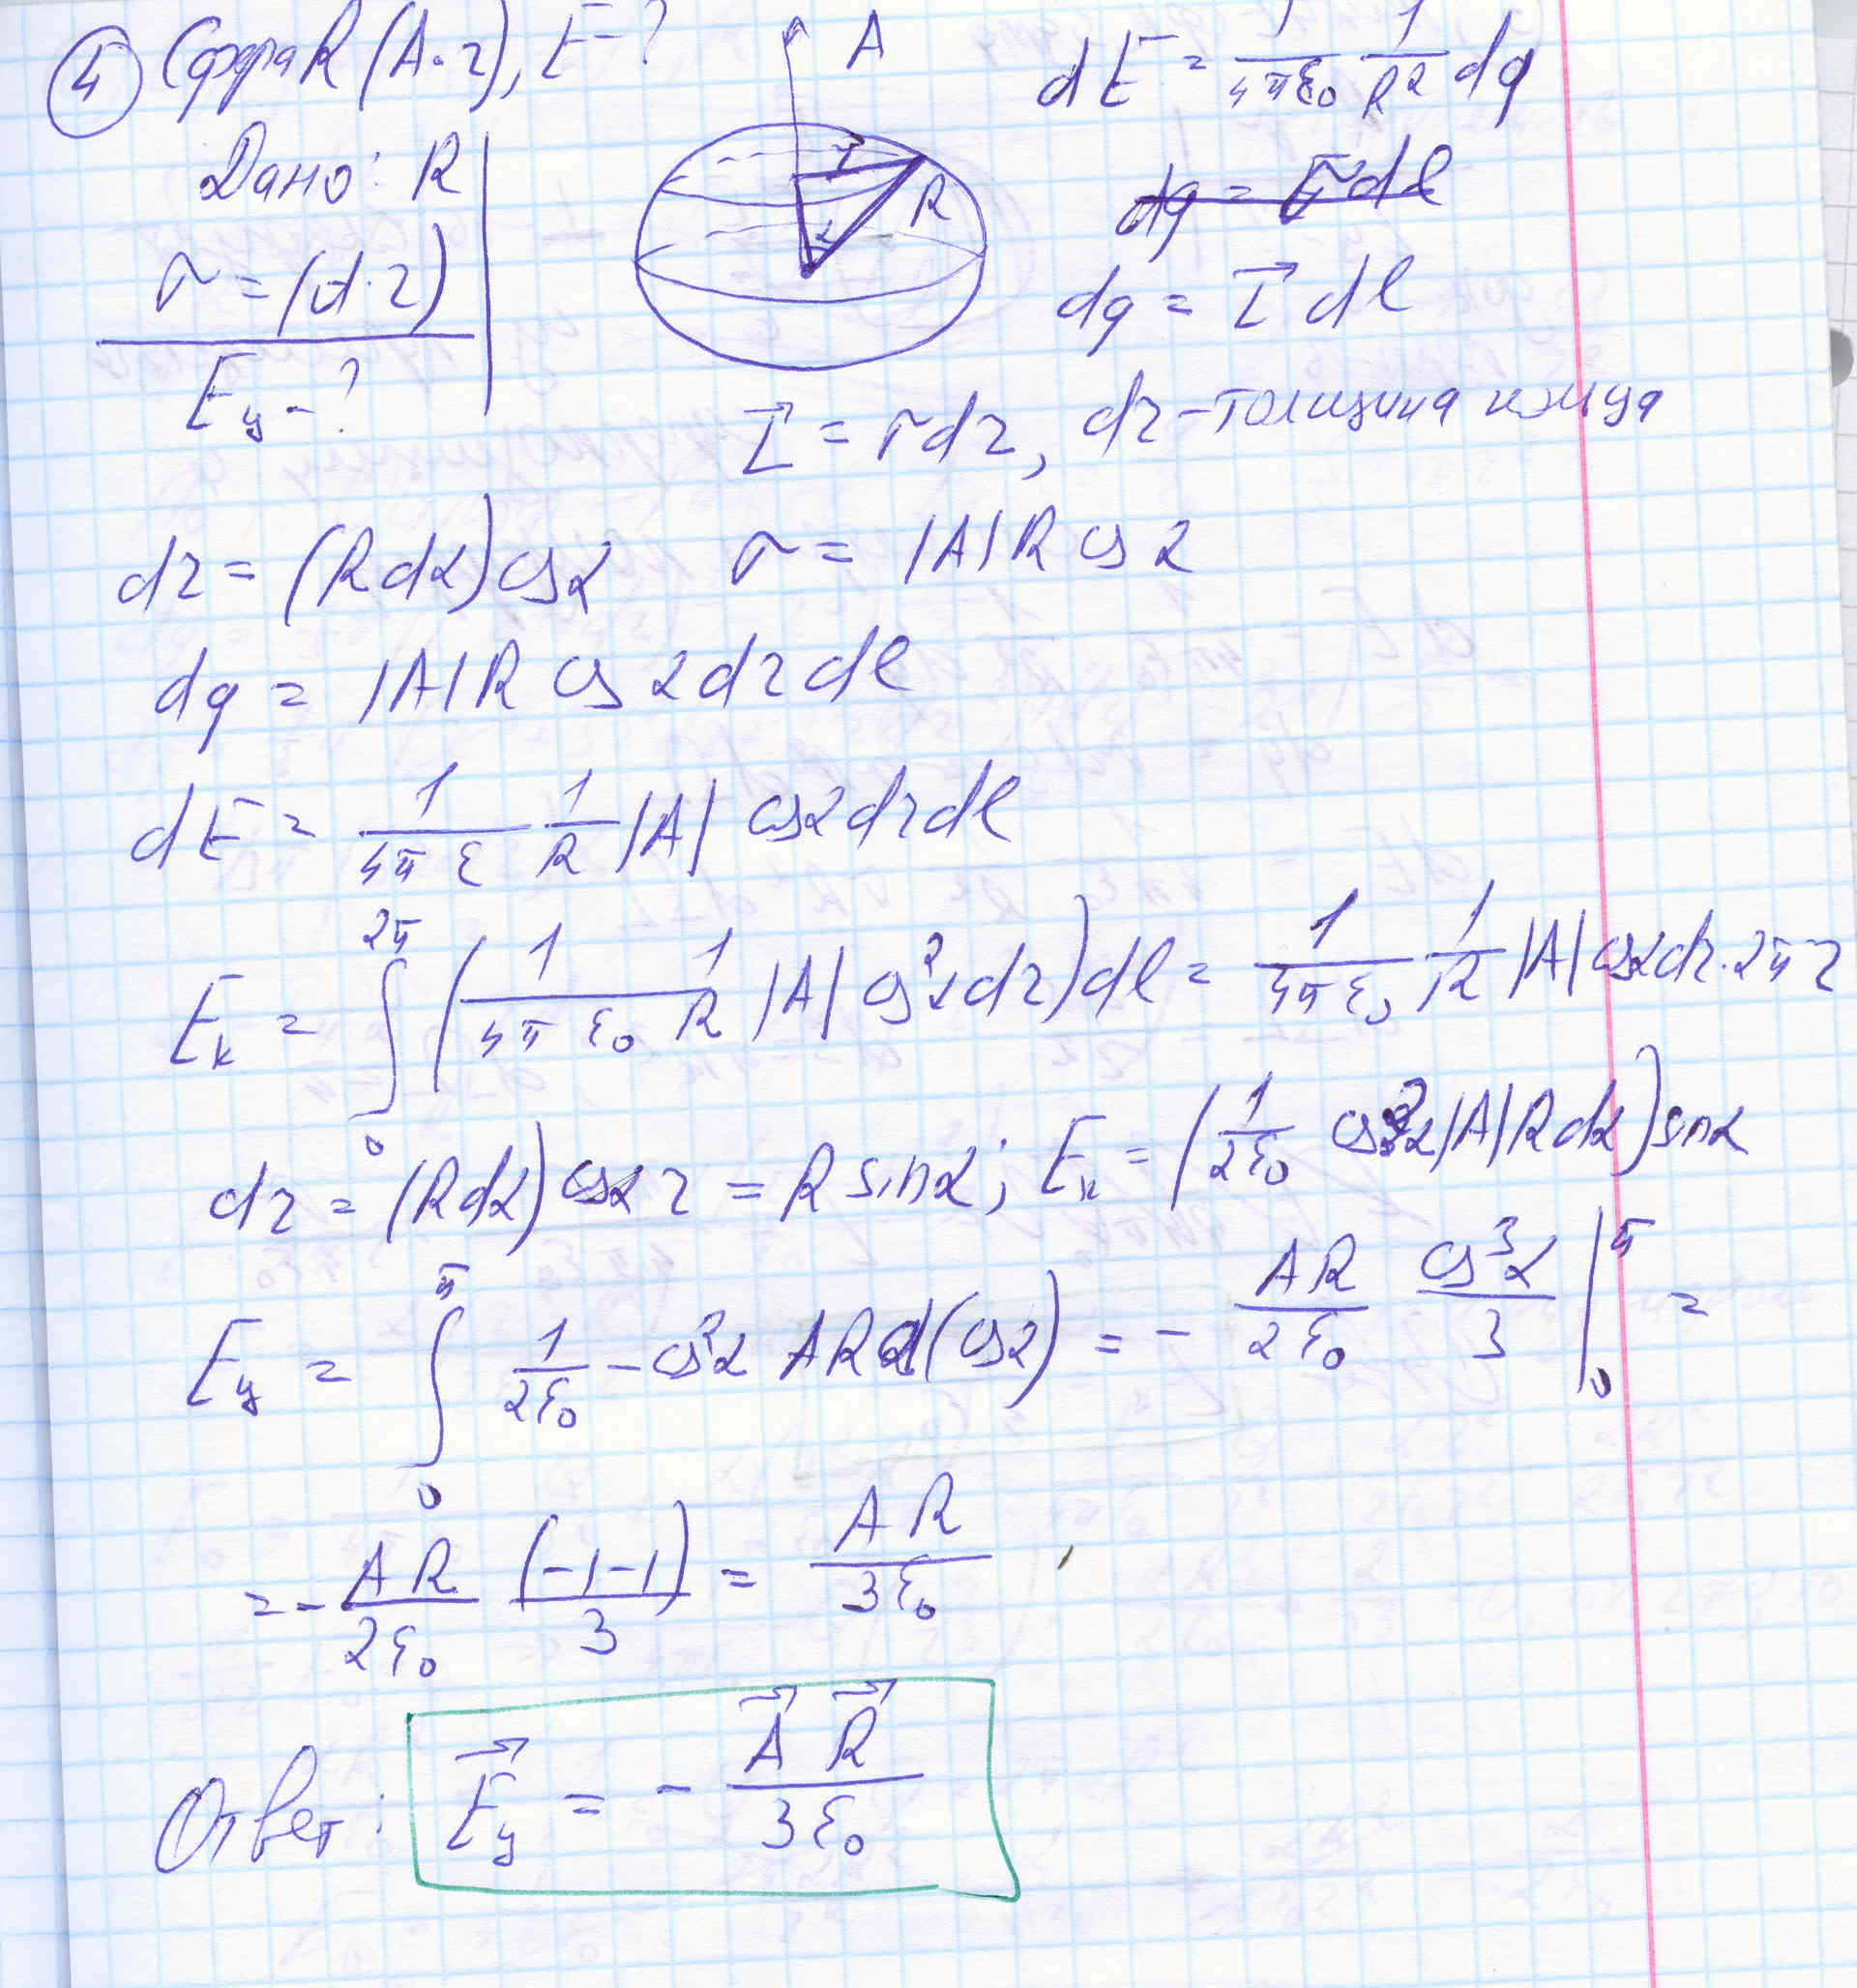 ④ Сфера R (A·r), E - ?
A
dE = 1/(4πε₀) 1/R² dq
Дано: R
r
R
α
dq = τ dl
σ = (A·r)
dq = τ⃗ dl
E_ц - ?
τ⃗ = σ dr, dr - толщина кольца
dr = (R dα) cos α σ = |A| R cos α
dq = |A| R cos α dr dl
dE = 1/(4πε) 1/R |A| cos α dr dl
E_к = ∫₀^2π (1/(4πε₀) 1/R |A| cos²α dr) dl = 1/(4πε₀) 1/R |A| cos α dr · 2πr
dr = (R dα) cos α r = R sin α; E_к = (1/(2ε₀) cos²α |A| R dα) sin α
E_ц = ∫₀^π 1/(2ε₀) - cos²α AR d(cos α) = - AR/(2ε₀) cos³α/3 |₀^π =
= - AR/(2ε₀) (-1-1)/3 = AR/(3ε₀)
Ответ: E⃗_ц = - A⃗ R⃗/(3ε₀)